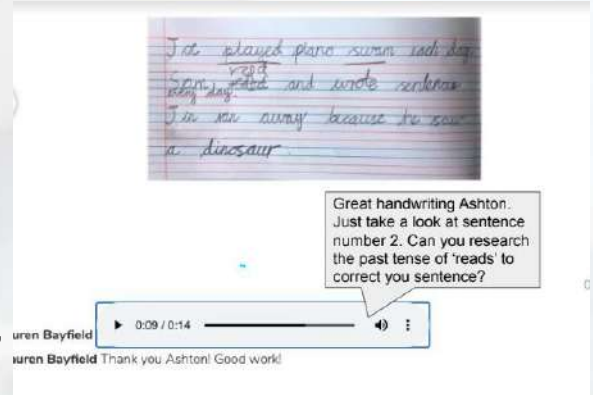 Joe played piano swam each day.
read
Sam and wrote sentences
every day.
Jim ran away because he saw
a dinosaur.
Great handwriting Ashton.
Just take a look at sentence
number 2. Can you research
the past tense of 'reads' to
correct you sentence?
0:09 / 0:14
uren Bayfield
uren Bayfield Thank you Ashton! Good work!